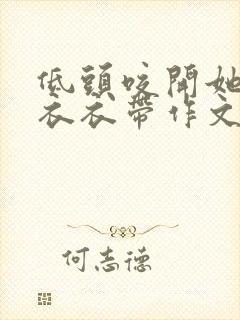 低頭咬開她
衣衣帶作文
何志德